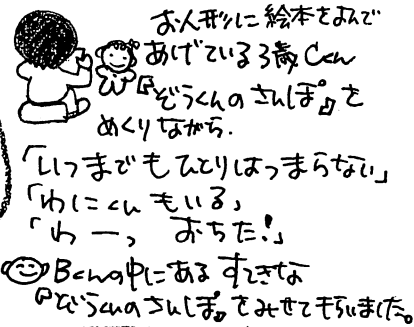 お人形に絵本をよんで
あげている3歳Cくん
『ぞうくんのさんぽ』を
めくりながら.
「いつまでもひとりはつまらない」
「わにくんもいる」
「わーっ おちた!」
Bくんの中にあるすてきな
『ぞうくんのさんぽ』をみせてもらいました。